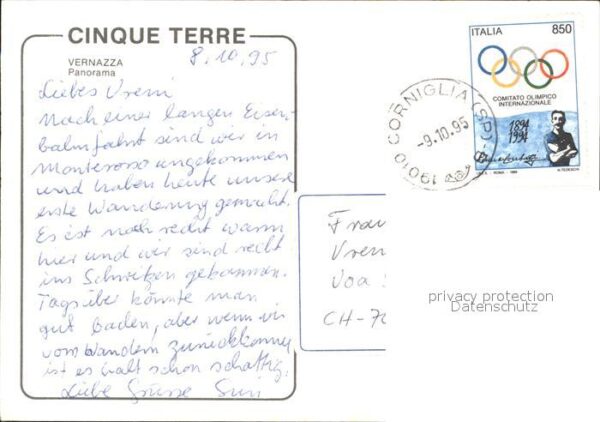 CINQUE TERRE
VERNAZZA
Panorama
8.10.95
Liebes Vreni
Nach einer langen Eisen-
bahnfahrt sind wir in
Monterosso angekommen
und haben heute unsere
erste Wanderung gemacht.
Es ist noch recht warm
hier und wir sind recht
ins Schwitzen gekommen.
Tags über könnte man
gut baden, aber wenn wir
vom Wandern zurückkommen
ist es halt schon schattig.
Liebe Grüsse
ITALIA 850
COMITATO OLIMPICO
INTERNAZIONALE
1894
1994
I.P.Z.S. - ROMA - 1994
CORNIGLIA (SP)
-9.10.95
19010
Frau
Vren
Voa
CH-70
privacy protection
Datenschutz